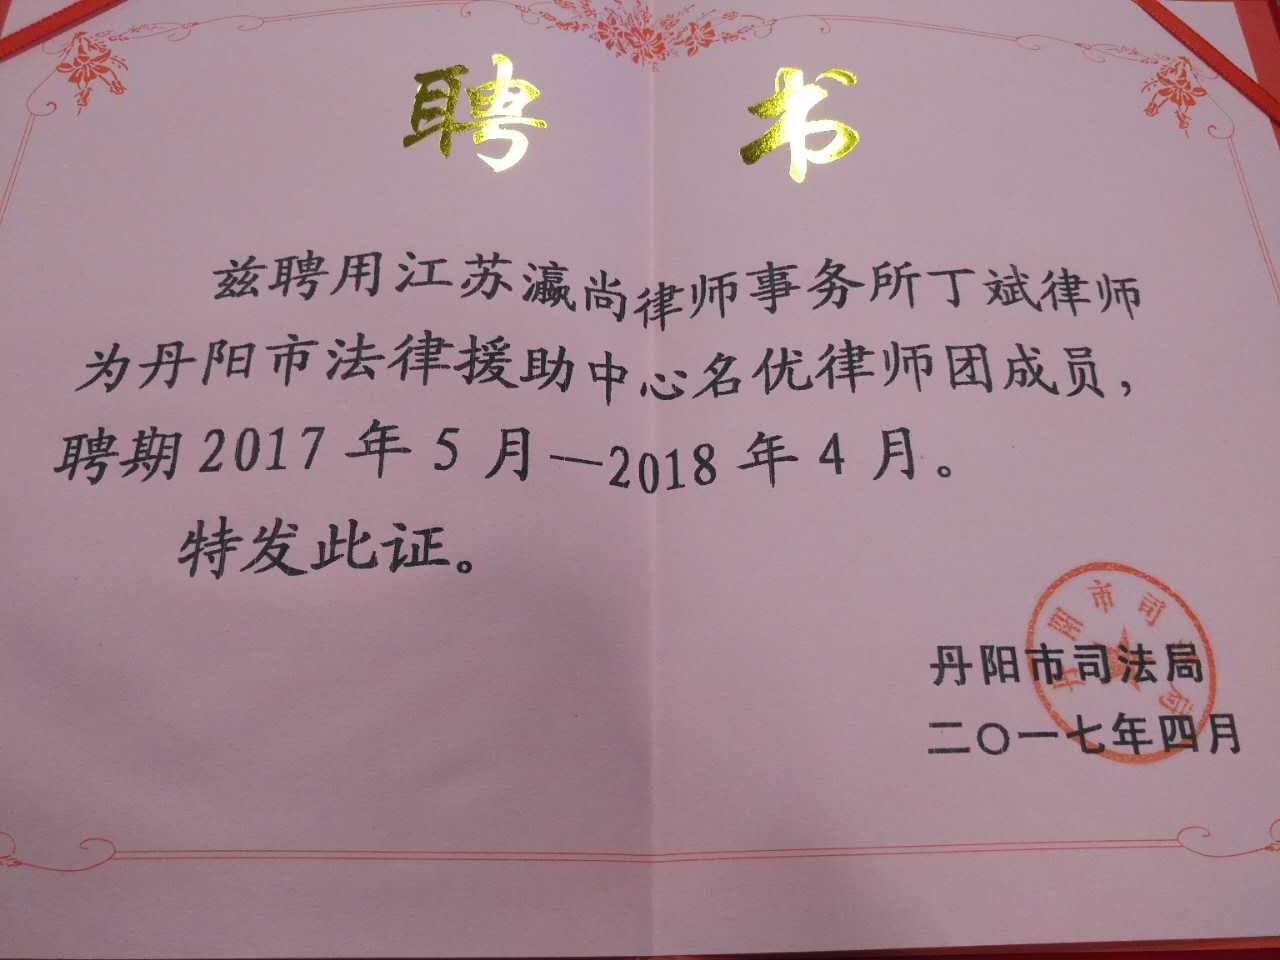 聘书
兹聘用江苏瀛尚律师事务所丁斌律师
为丹阳市法律援助中心名优律师团成员，
聘期2017年5月—2018年4月。
特发此证。
丹阳市司法局
二〇一七年四月